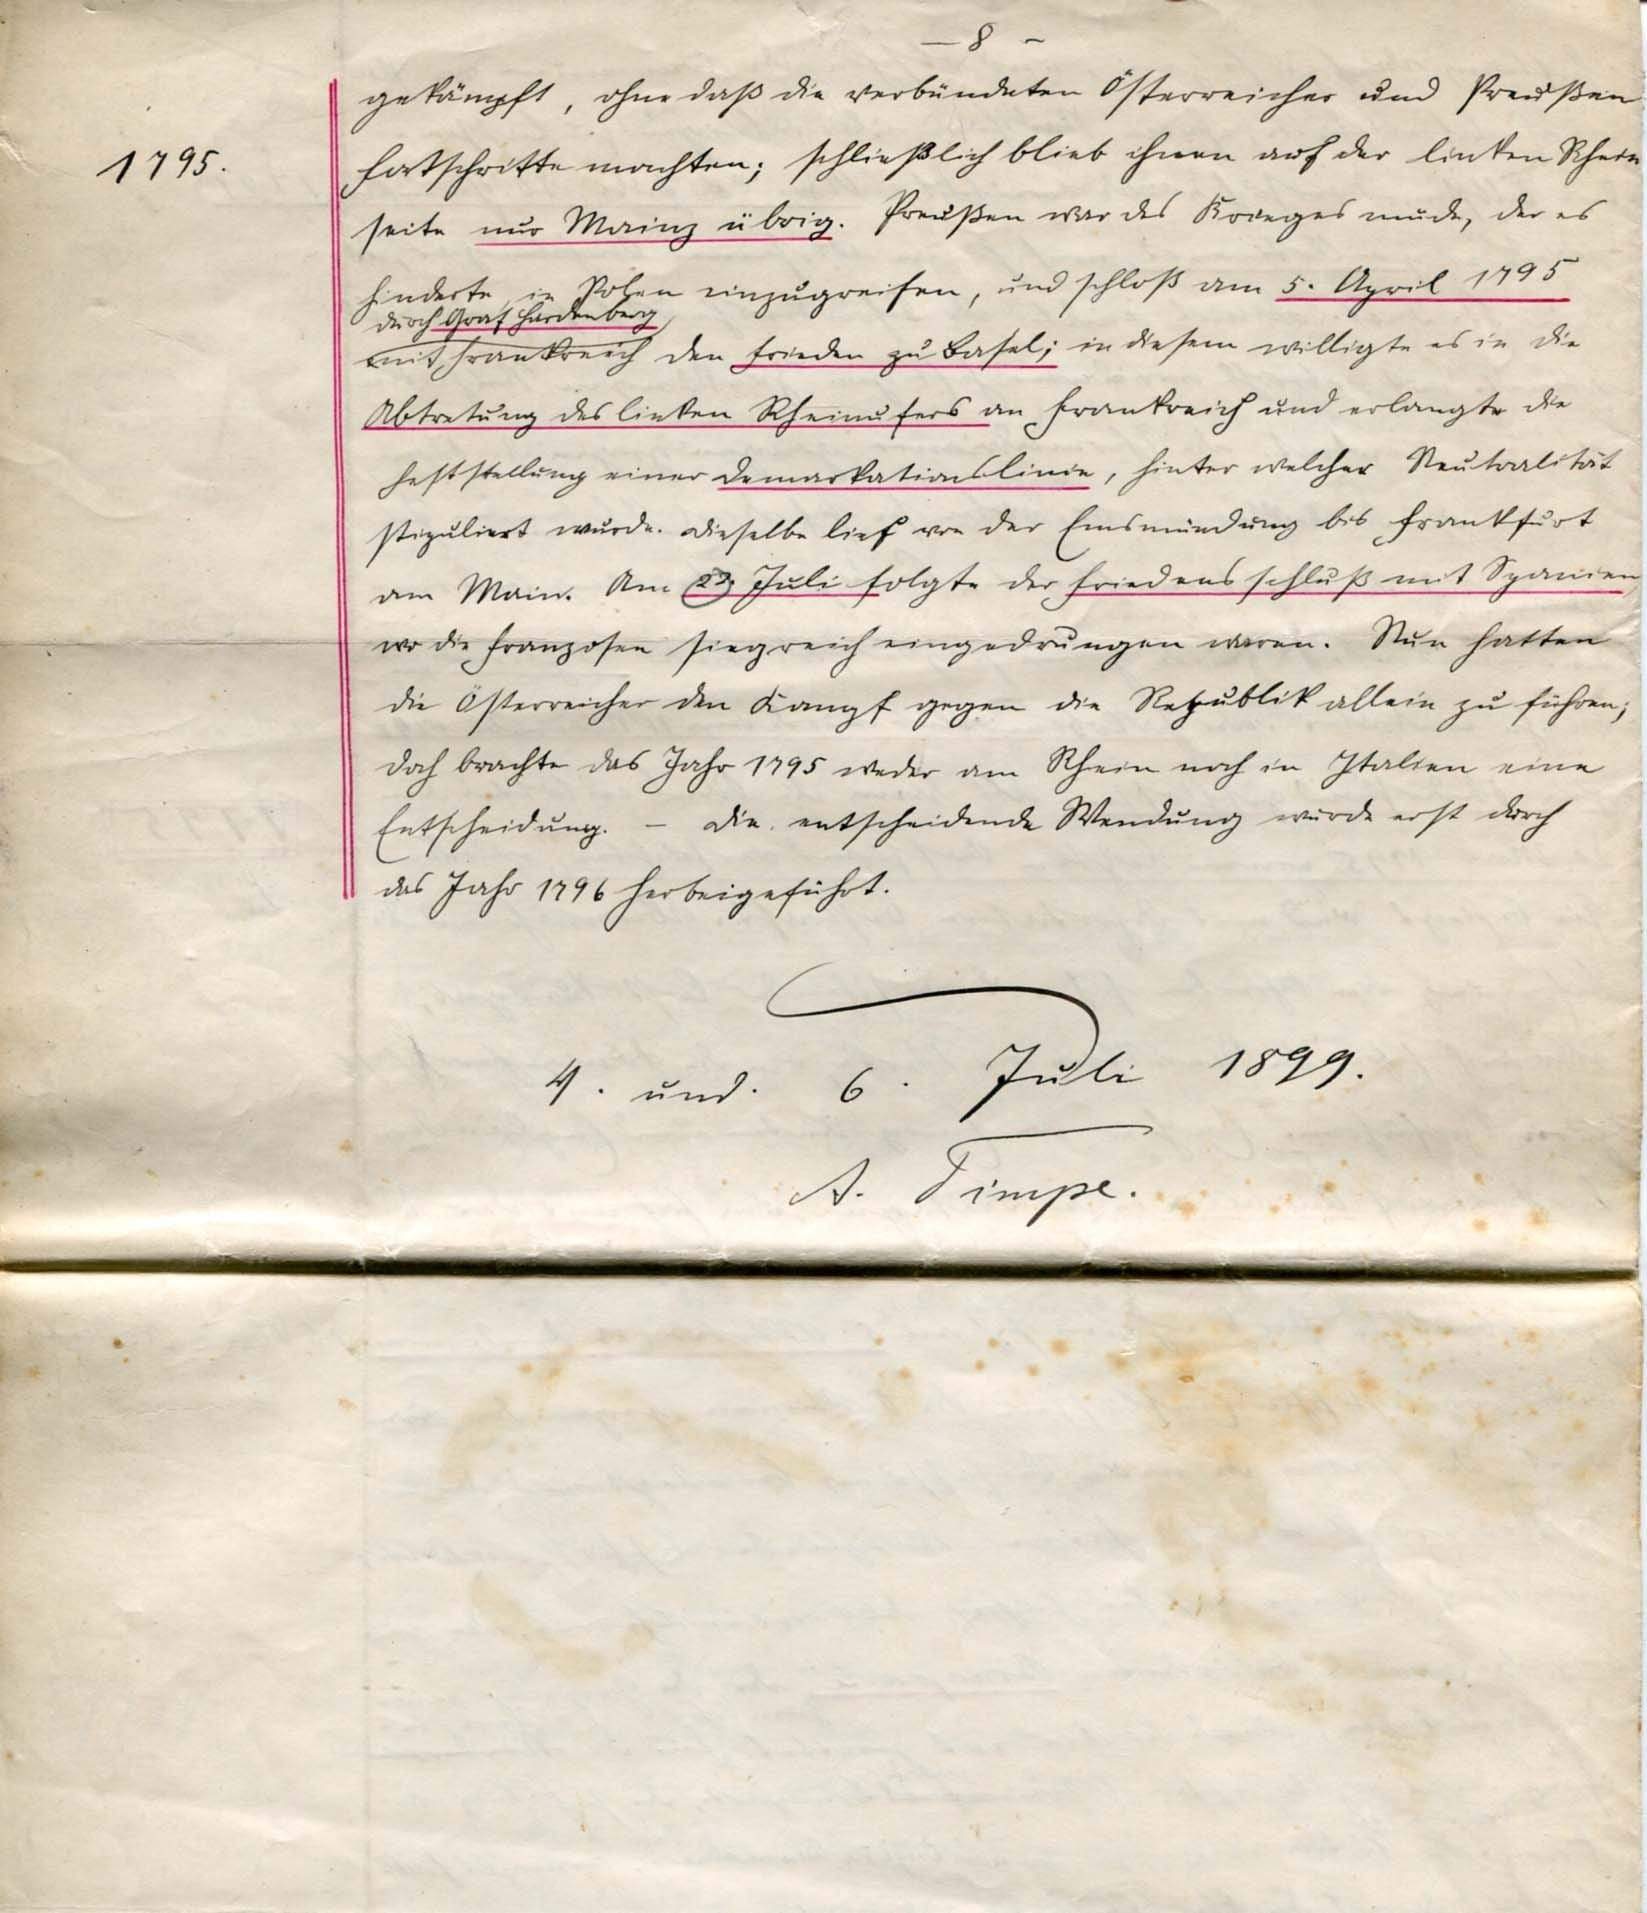 — 8 –
gekämpft, ohne daß die verbündeten Österreicher und Preußen
1795.
Fortschritte machten; schließlich blieb ihnen auf der linken Rhein
seite nur Mainz übrig. Preußen war des Krieges müde, der es
hinderte, in Polen einzugreifen, und schloß am 5. April 1795
durch Graf Hardenberg
mit Frankreich den Frieden zu Basel; in diesem willigte es in die
Abtretung des linken Rheinufers an Frankreich und erlangte die
Feststellung einer Demarkationslinie, hinter welcher Neutralität
stipuliert wurde. Dieselbe lief von der Emsmündung bis Frankfurt
am Main. Am 22. Juli folgte der Friedensschluß mit Spanien,
wo die Franzosen siegreich eingedrungen waren. Nun hatten
die Österreicher den Kampf gegen die Republik allein zu führen;
doch brachte das Jahr 1795 weder am Rhein noch in Italien eine
Entscheidung. – Die entscheidende Wendung wurde erst durch
das Jahr 1796 herbeigeführt.
4. und. 6. Juli 1899.
A. Timpe.